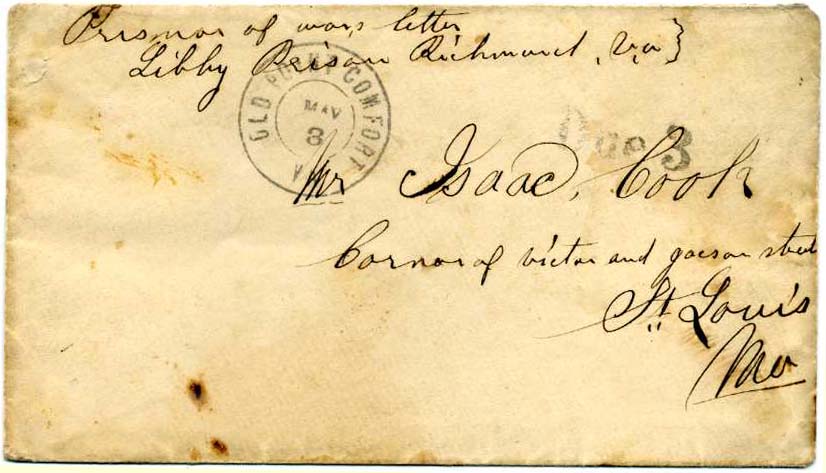 Prisnor of wars letter
Libby Prison Richmond, Va}
OLD POINT COMFORT
MAY
3
VA
Due 3
Mr Isaac, Cook
Cornor of victor and street
St Louis
Mo